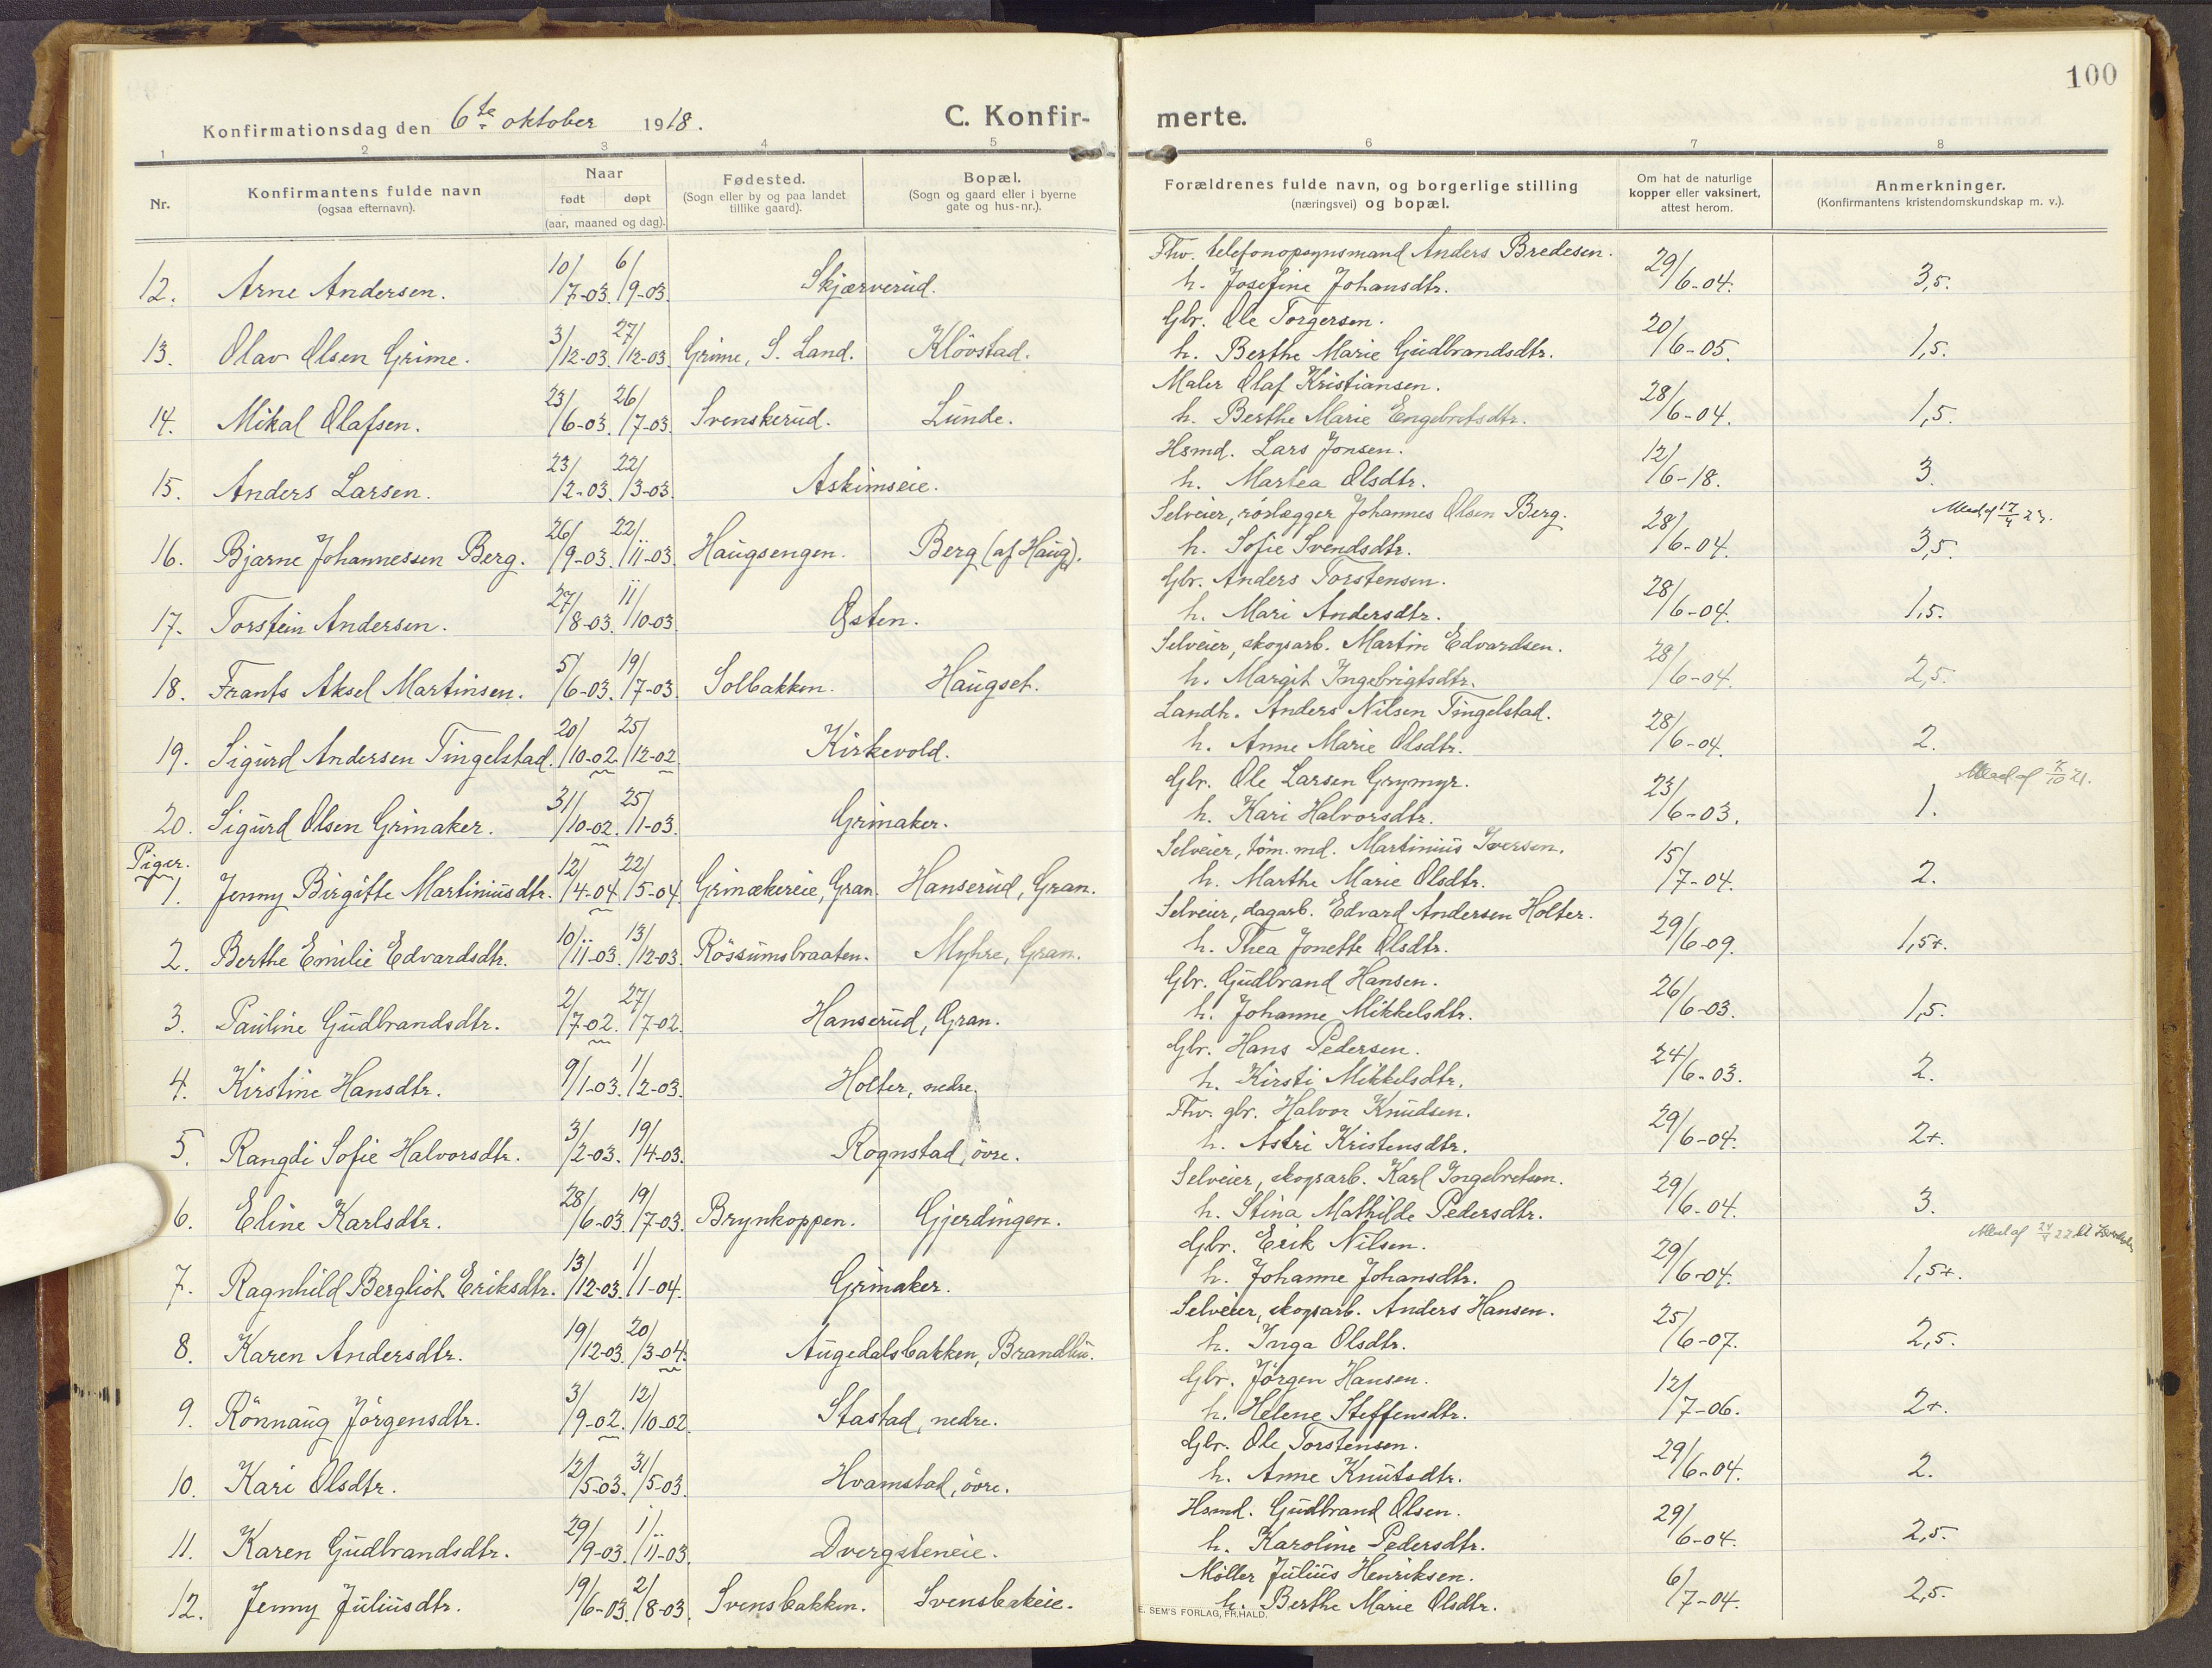 100
Konfirmationsdag den 6te oktober 1918.
C. Konfir-
merte.
1 2 3 4 5 6 7 8
Nr.
Konfirmantens fulde navn
(ogsaa efternavn).
Naar
født døpt
(aar, maaned og dag).
Fødested.
(Sogn eller by og paa landet
tillike gaard).
Bopæl.
(Sogn og gaard eller i byerne
gate og hus-nr.).
Forældrenes fulde navn, og borgerlige stilling
(næringsvei) og bopæl.
Om hat de naturlige
kopper eller vaksinert,
attest herom.
Anmerkninger.
(Konfirmantens kristendomskundskap m. v.).
Fhv. telefonopsynsmand Anders Bredesen.
12. Arne Andersen. 10/7-03. 6/9-03. Skjærverud. h. Josefine Johansdtr. 29/6-04. 3,5.
Gbr. Ole Torgersen.
13. Olav Olsen Grime. 3/12-03. 27/12-03. Grime, S. Land. Klövstad. h. Berthe Marie Gudbrandsdtr. 20/6-05. 1,5.
Maler Olaf Kristiansen.
14. Mikal Olafsen. 23/6-03. 26/7-03. Svenskerud. Lunde. h. Berthe Marie Engebretsdtr. 28/6-04. 1,5.
Hsmd. Lars Jonsen.
15. Anders Larsen. 23/2-03. 22/3-03. Askimseie. h. Martea Olsdtr. 12/6-18. 3.
Selveier, rörlægger Johannes Olsen Berg. 17/4 23.
16. Bjarne Johannessen Berg. 26/9-03. 22/11-03. Haugsengen. Berg (af Haug). h. Sofie Svendsdtr. 28/6-04. 3,5.
Gbr. Anders Torstensen.
17. Torstein Andersen. 27/8-03. 11/10-03. Østen. h. Mari Andersdtr. 28/6-04. 1,5.
Selveier, skogsarb. Martin Edvardsen.
18. Frants Aksel Martinsen. 5/6-03. 19/7-03. Solbakken. Haugset. h. Margit Ingebrigtsdtr. 28/6-04. 2,5.
Landh. Anders Nilsen Tingelstad.
19. Sigurd Andersen Tingelstad. 20/10-02. 25/12-02. Kirkevold. h. Anne Marie Olsdtr. 28/6-04. 2.
Gbr. Ole Larsen Grymyr.
20. Sigurd Olsen Grinaker. 31/10-02. 25/1-03. Grinaker. h. Kari Halvorsdtr. 23/6-03. 1.
Piger.
Selveier, töm. md. Martinius Iversen.
1. Jenny Birgitte Martiniusdtr. 12/4-04. 22/5-04. Grinakereie, Gran. Hanserud, Gran. h. Marthe Marie Olsdtr. 15/7-04. 2.
Selveier, dagarb. Edvard Andersen Holter.
2. Berthe Emilie Edvardsdtr. 10/11-03. 13/12-03. Rössumsbraaten. Myhre, Gran. h. Thea Jonette Olsdtr. 29/6-09. 1,5+.
Gbr. Gudbrand Hansen.
3. Pauline Gudbrandsdtr. 2/7-02. 27/7-02. Hanserud, Gran. h. Johanne Mikkelsdtr. 26/6-03. 1,5.
Gbr. Hans Pedersen.
4. Kirstine Hansdtr. 9/1-03. 1/2-03. Holter, nedre. h. Kirsti Mikkelsdtr. 24/6-03. 2.
Fhv. gbr. Halvor Knudsen.
5. Rangdi Sofie Halvorsdtr. 3/2-03. 19/4-03. Rognstad, övre. h. Astri Kristensdtr. 29/6-04. 2+.
Selveier, skogsarb. Karl Ingebretsen.
6. Eline Karlsdtr. 28/6-03. 19/7-03. Brynkoppen. Gjerdingen. h. Stina Mathilde Pedersdtr. 29/6-04. 3.
Gbr. Erik Nilsen.
7. Ragnhild Bergliot Eriksdtr. 13/12-03. 1/1-04. Grinaker. h. Johanne Johansdtr. 29/6-04. 1,5+.
Selveier, skogsarb. Anders Hansen.
8. Karen Andersdtr. 19/12-03. 20/3-04. Augedalsbakken, Brandbu. h. Inga Olsdtr. 25/6-07. 2,5.
Gbr. Jörgen Hansen.
9. Rönnaug Jörgensdtr. 3/9-02. 12/10-02. Stastad, nedre. h. Helene Steffensdtr. 12/7-06. 2+.
Gbr. Ole Torstensen.
10. Kari Olsdtr. 12/5-03. 31/5-03. Hvamstad, övre. h. Anne Knutsdtr. 29/6-04. 2.
Hsmd. Gudbrand Olsen.
11. Karen Gudbrandsdtr. 29/9-03. 1/11-03. Dvergsteneie. h. Karoline Pedersdtr. 29/6-04. 2,5.
Möller Julius Henriksen.
12. Jenny Juliusdtr. 19/6-03. 2/8-03. Svensbakken. Svensbakeie. h. Berthe Marie Olsdtr. 6/7-04. 2,5.
E. SEM'S FORLAG, FR.HALD.